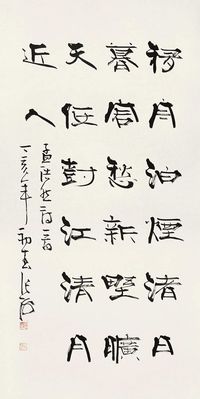 移舟泊煙渚日
暮客愁新野曠
天低樹江清月
近人
孟浩然詩一首
丁亥年初春張海